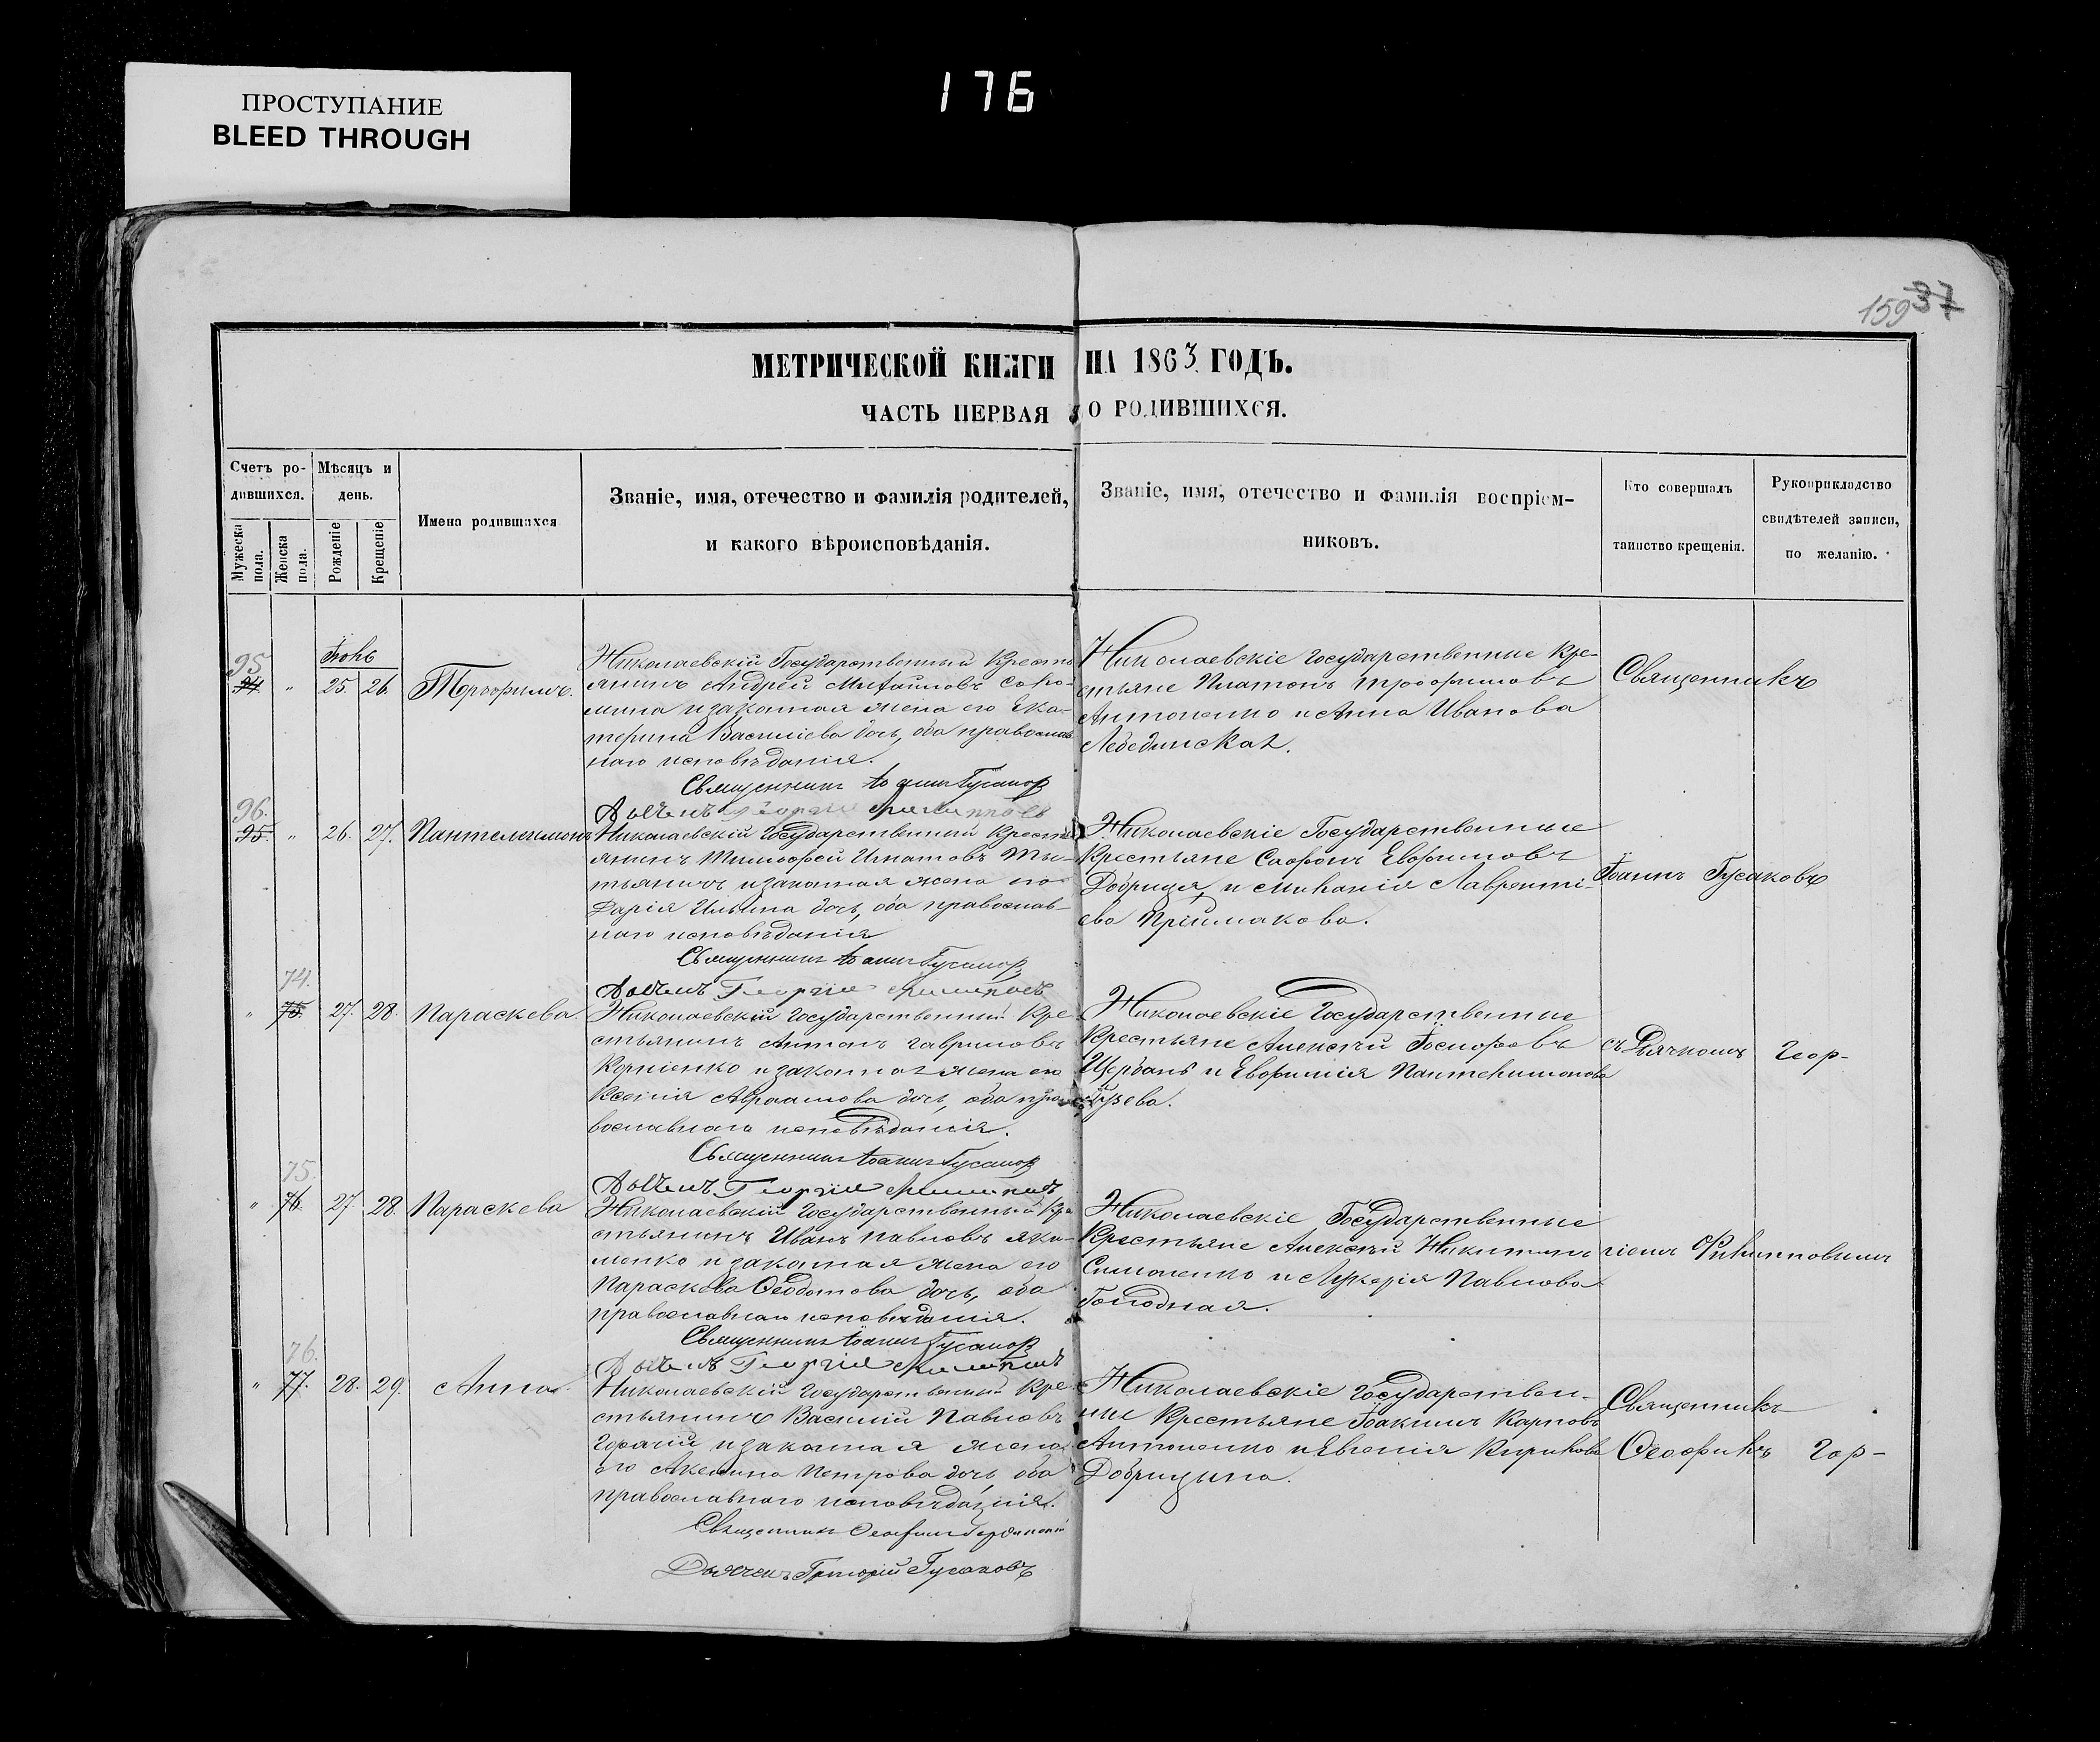 ПРОСТУПАНИЕ
BLEED THROUGH
176
159 37
МЕТРИЧЕСКОЙ КНИГИ НА 1863 ГОДЪ.
ЧАСТЬ ПЕРВАЯ О РОДИВШИХСЯ.
Счетъ ро-
дившихся.
Мужеска пола.
Женска пола.
Мѣсяцъ и
день.
Рожденіе
Крещеніе
Имена родившихся
Званіе, имя, отечество и фамилія родителей,
и какого вѣроисповѣданія.
Званіе, имя, отечество и фамилія воспріем-
никовъ.
Кто совершалъ
таинство крещенія.
Рукоприкладство
свидѣтелей записи,
по желанію.
95
94 " Іюнь 25. 26. Трофимъ.
Николаевскій Государственный Кресть
янинъ Андрей Михайловъ
и законная жена его Ека-
терина Василіева дочь, оба православ
наго исповѣданія.
Священникъ Іоаннъ Гусаков
Дьячекъ Георгій
Николаевскіе Государственные Кре-
стьяне Платонъ Трофимовъ
Антоненко и Анна Иванова
Лебединская.
Священникъ
96.
95. " 26. 27. Пантелеимонъ
Николаевскій Государственный Кресть
янинъ Тимофей Игнатовъ
и законная жена его
Дарія Ильина дочь, оба православ-
наго исповѣданія
Священникъ Іоаннъ Гусаков
Дьячекъ Георгій
Николаевскіе Государственные
Крестьяне Софронъ Евфимовъ
Добрица, и Меланія Лавренті-
ева Пріймакова.
Іоаннъ Гусаковъ
74.
" 75. 27. 28. Параскева.
Николаевскій Государственный Кре-
стьянинъ Антонъ Гавриловъ
Корніенко и законная жена его
Ксенія Авраамова дочь, оба пра-
вославнаго исповѣданія.
Священникъ Іоаннъ Гусаков
Дьячекъ Георгій
Николаевскіе Государственные
Крестьяне Алексѣй Іосифовъ
Щербань и Евфимія Пантелимонова
съ Дьячкомъ Геор-
75
" 76. 27. 28. Параскева
Николаевскій Государственный Кре
стьянинъ Иванъ Павловъ Яки-
менко и законная жена его
Параскева Ѳеодотова дочь, оба
православнаго исповѣданія.
Священникъ Іоаннъ Гусаков
Дьячекъ Георгій
Николаевскіе Государственные
Крестьяне Алексѣй Никитинъ
Симоненко и Лукерія Павлова
Голодная.
гіемъ Филипповымъ
76.
" 77. 28. 29. Анна.
Николаевскій Государственный Кре
стьянинъ Василій Павловъ
Горячій и законная жена
его Акелина Петрова дочь, оба
православнаго исповѣданія.
Священникъ Ѳеофилъ
Дьячекъ Григорій Гусаковъ
Николаевскіе Государствен-
ные Крестьяне Іоакимъ Карповъ
Антоненко и Евгенія Кирилова
Добрицына.
Священникъ
Ѳеофилъ Гор-